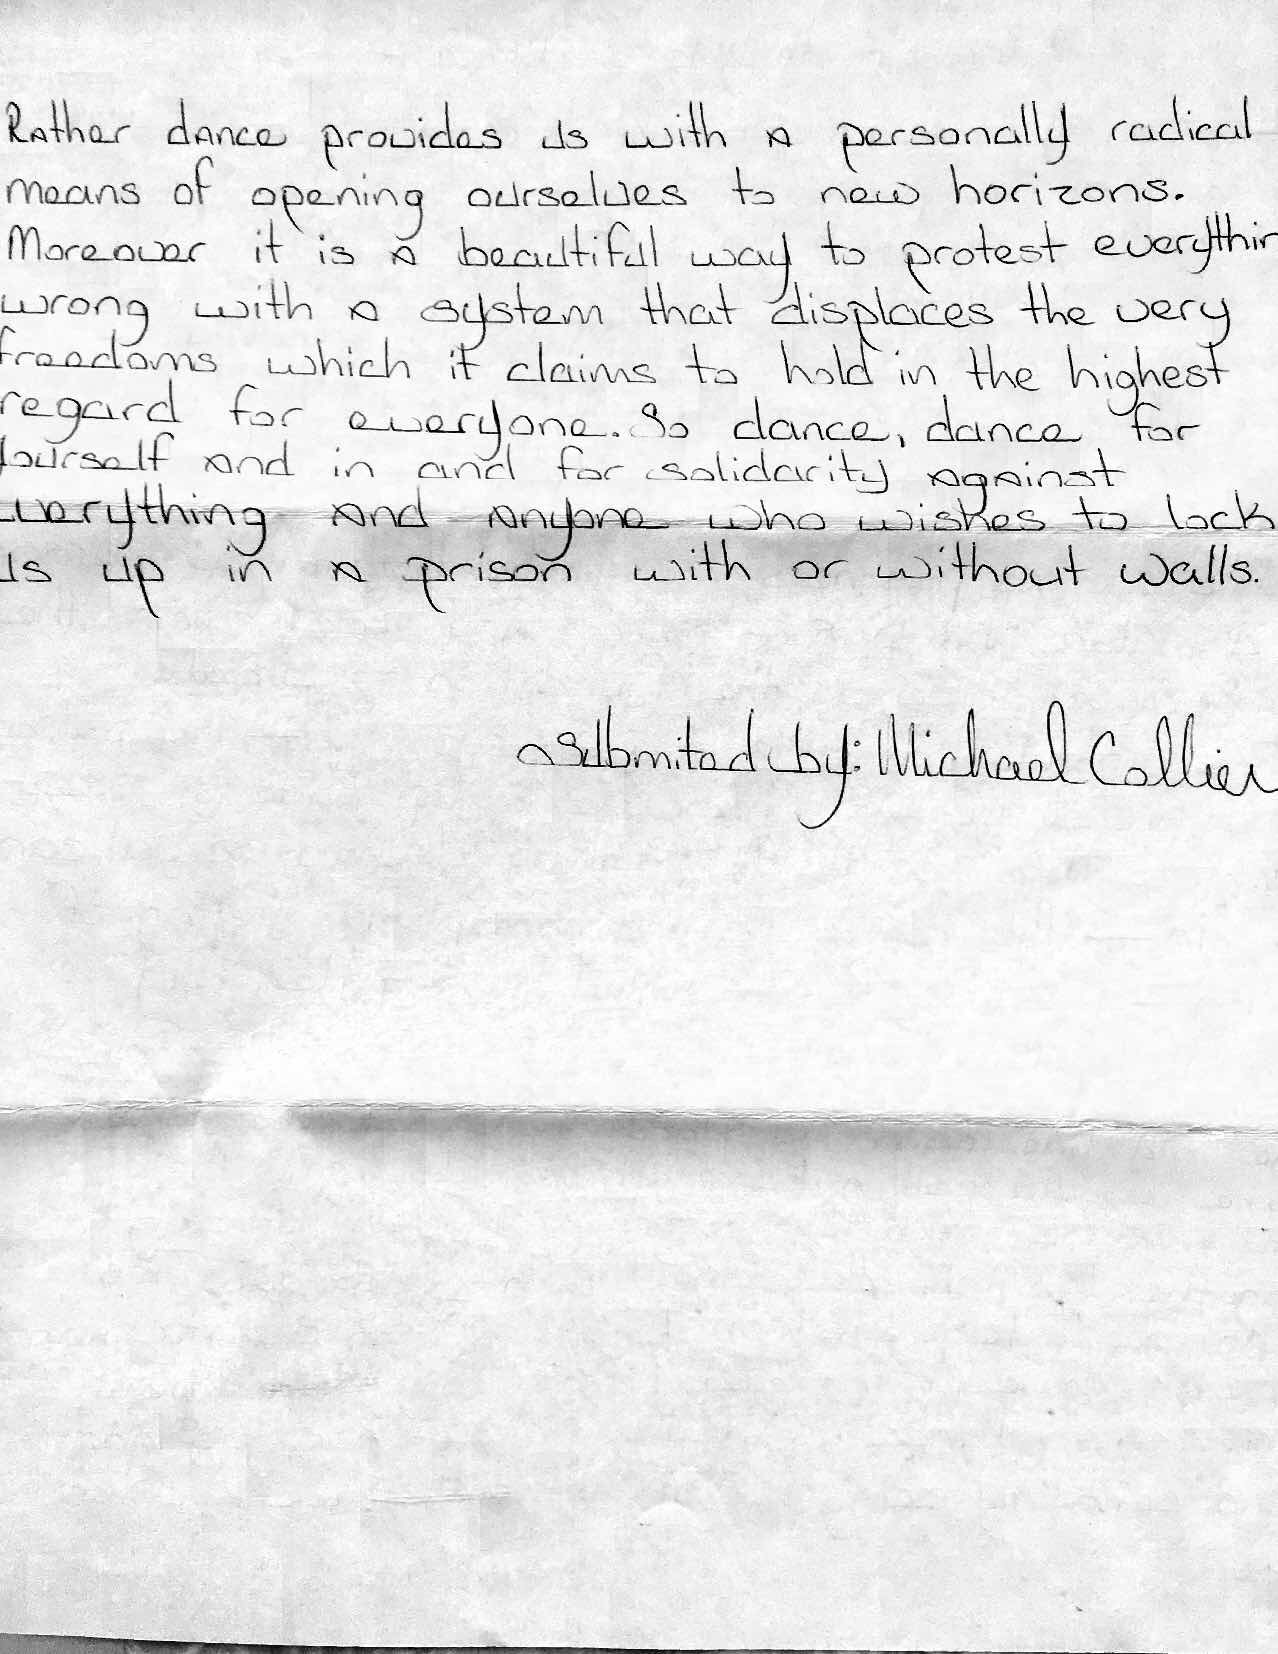 Rather dance provides us with a personally radical
means of opening ourselves to new horizons.
Moreover it is a beautiful way to protest everythin
wrong with a system that displaces the very
freedoms which it claims to hold in the highest
regard for everyone. So dance, dance for
yourself and in and for solidarity against
everything and anyone who wishes to lock
us up in a prison with or without walls.
Submited by: Michael Collier